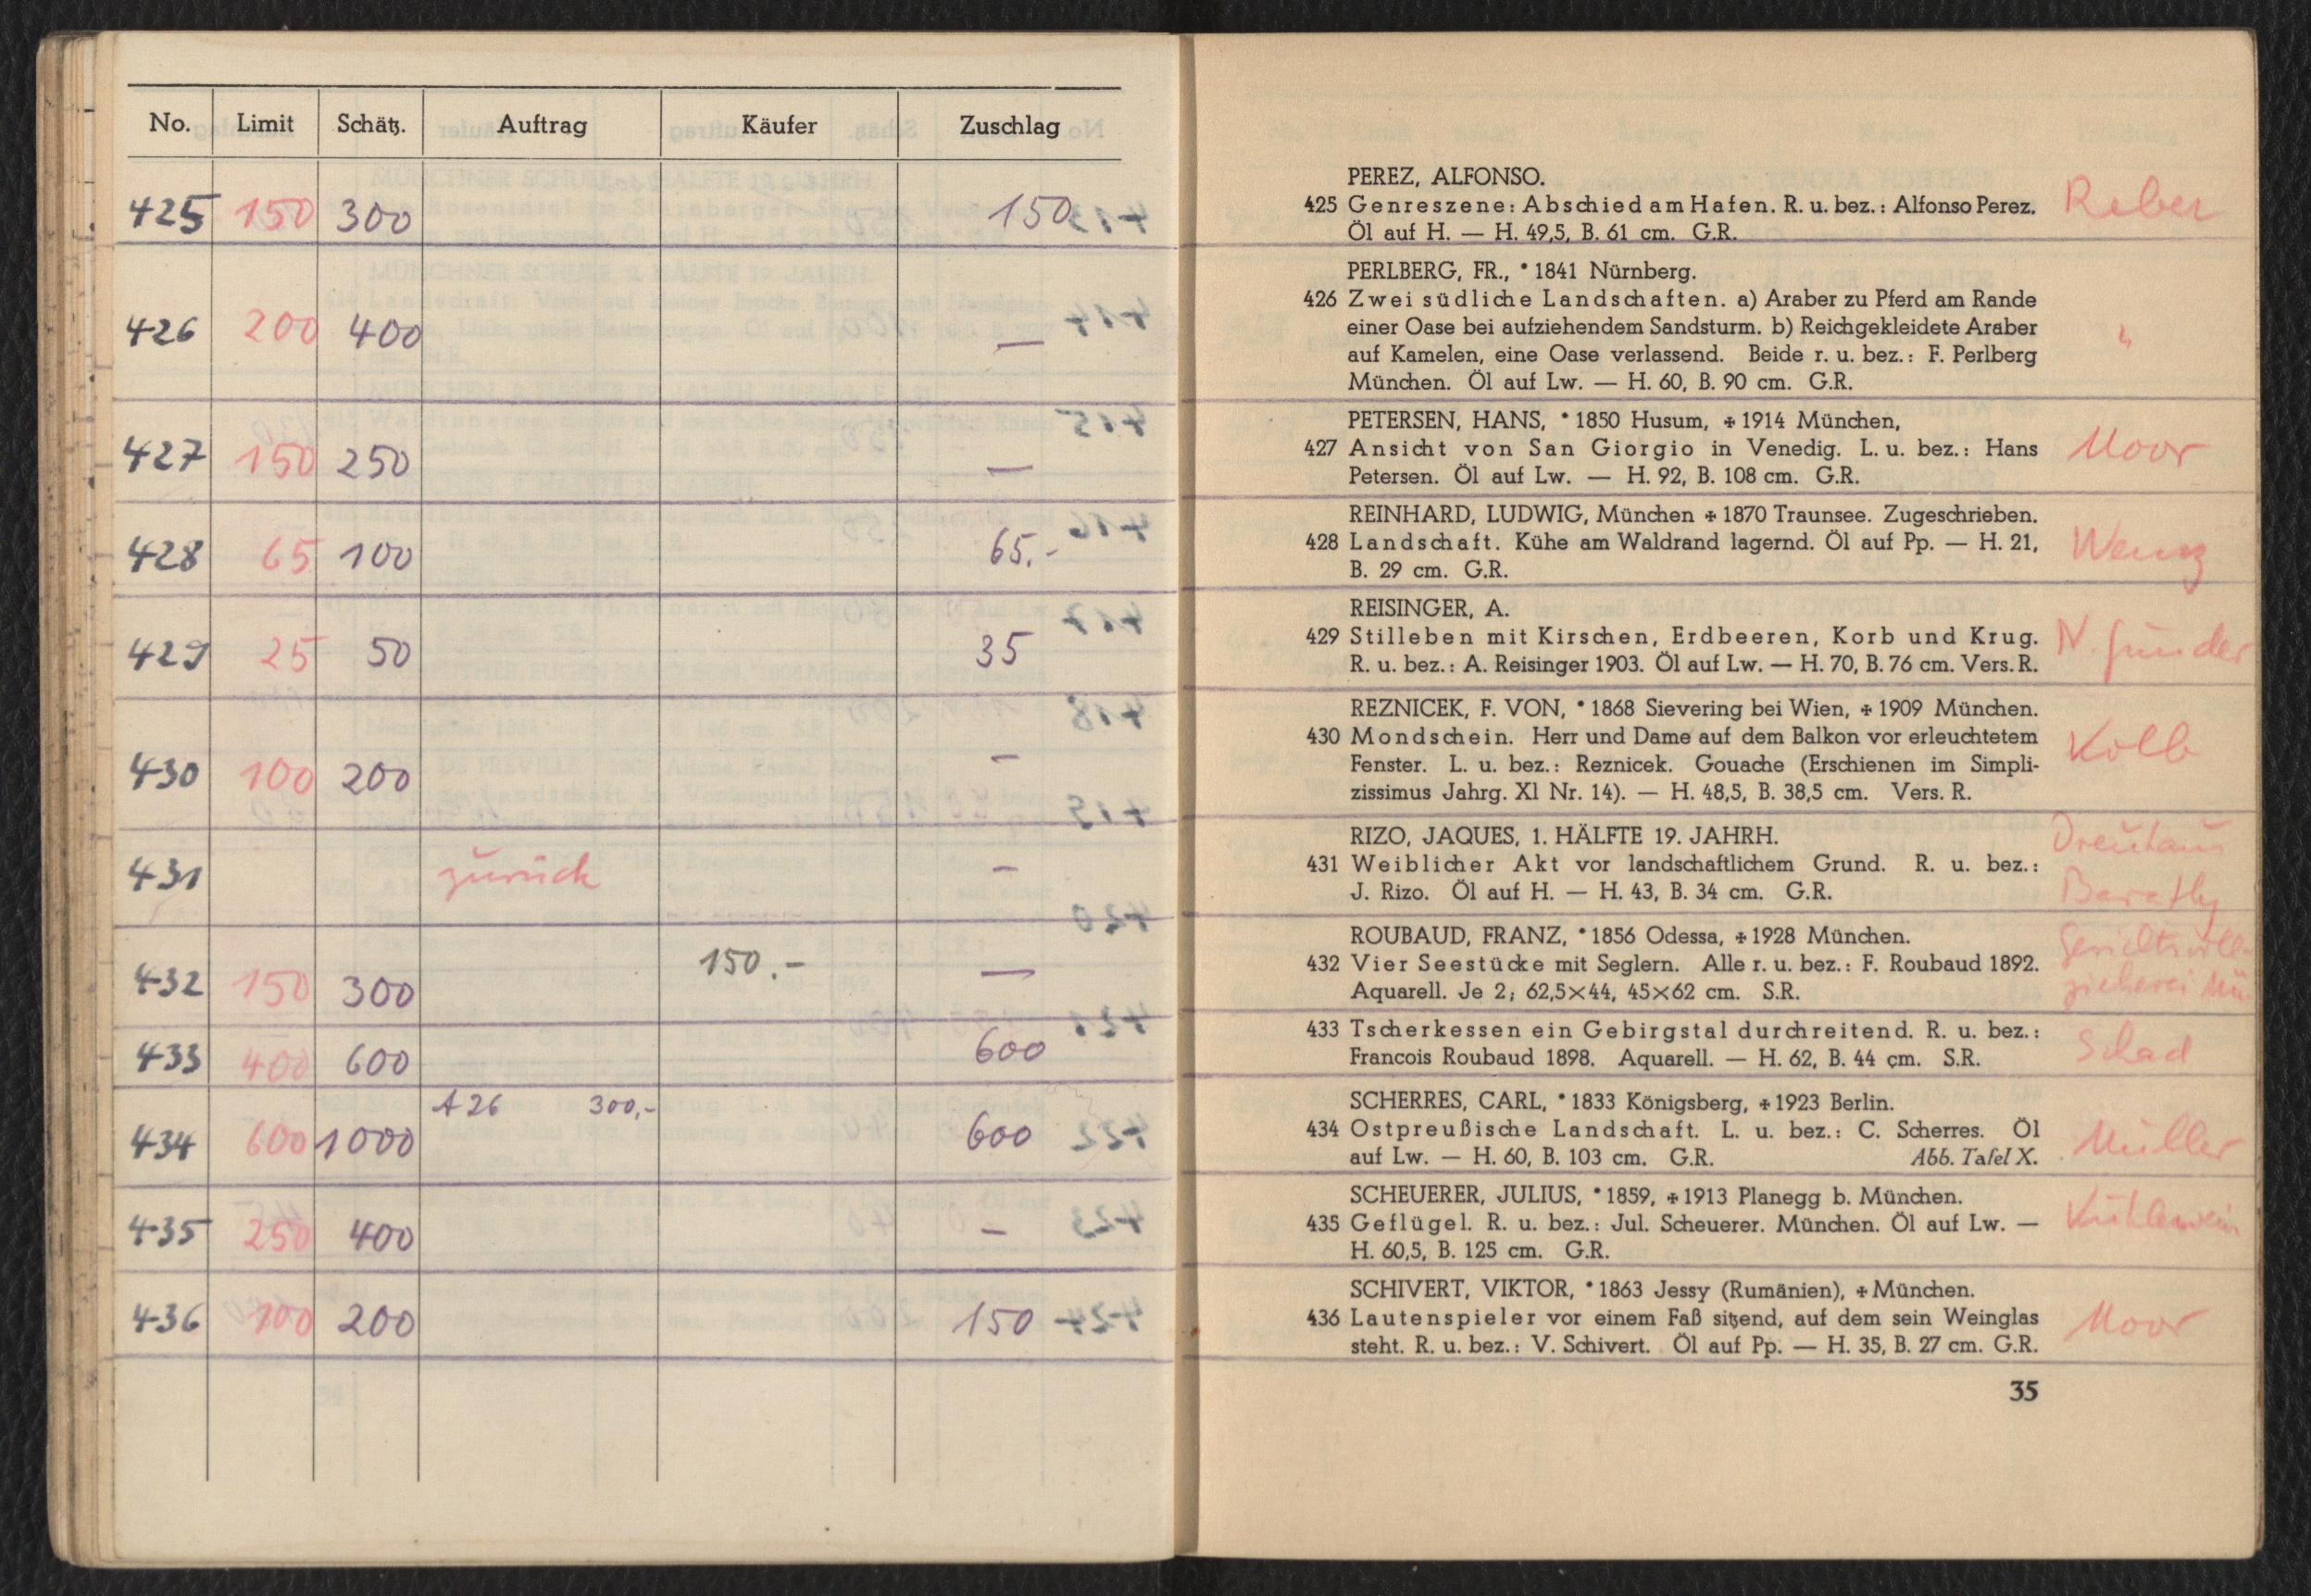 No. Limit Schätz. Auftrag Käufer Zuschlag
425 150 300 150
426 200 400 —
427 150 250 —
428 65 100 65.-
429 25 50 35
430 100 200 —
431 zurück —
432 150 300 150.- —
433 400 600 600
A 26 300,-
434 600 1000 600
435 250 400 —
436 100 200 150
PEREZ, ALFONSO.
425 Genreszene: Abschied am Hafen. R. u. bez.: Alfonso Perez. Reber
Öl auf H. — H. 49,5, B. 61 cm. G.R.
PERLBERG, FR., * 1841 Nürnberg.
426 Zwei südliche Landschaften. a) Araber zu Pferd am Rande
einer Oase bei aufziehendem Sandsturm. b) Reichgekleidete Araber "
auf Kamelen, eine Oase verlassend. Beide r. u. bez.: F. Perlberg
München. Öl auf Lw. — H. 60, B. 90 cm. G.R.
PETERSEN, HANS, * 1850 Husum, ✠ 1914 München,
427 Ansicht von San Giorgio in Venedig. L. u. bez.: Hans Moor
Petersen. Öl auf Lw. — H. 92, B. 108 cm. G.R.
REINHARD, LUDWIG, München ✠ 1870 Traunsee. Zugeschrieben.
428 Landschaft. Kühe am Waldrand lagernd. Öl auf Pp. — H. 21,
B. 29 cm. G.R.
REISINGER, A.
429 Stilleben mit Kirschen, Erdbeeren, Korb und Krug.
R. u. bez.: A. Reisinger 1903. Öl auf Lw. — H. 70, B. 76 cm. Vers. R.
REZNICEK, F. VON, * 1868 Sievering bei Wien, ✠ 1909 München.
430 Mondschein. Herr und Dame auf dem Balkon vor erleuchtetem Kolb
Fenster. L. u. bez.: Reznicek. Gouache (Erschienen im Simpli-
zissimus Jahrg. XI Nr. 14). — H. 48,5, B. 38,5 cm. Vers. R.
RIZO, JAQUES, 1. HÄLFTE 19. JAHRH.
431 Weiblicher Akt vor landschaftlichem Grund. R. u. bez.:
J. Rizo. Öl auf H. — H. 43, B. 34 cm. G.R.
ROUBAUD, FRANZ, * 1856 Odessa, ✠ 1928 München.
432 Vier Seestücke mit Seglern. Alle r. u. bez.: F. Roubaud 1892.
Aquarell. Je 2; 62,5×44, 45×62 cm. S.R.
433 Tscherkessen ein Gebirgstal durchreitend. R. u. bez.: Schad
Francois Roubaud 1898. Aquarell. — H. 62, B. 44 cm. S.R.
SCHERRES, CARL, * 1833 Königsberg, ✠ 1923 Berlin.
434 Ostpreußische Landschaft. L. u. bez.: C. Scherres. Öl Müller
auf Lw. — H. 60, B. 103 cm. G.R. Abb. Tafel X.
SCHEUERER, JULIUS, * 1859, ✠ 1913 Planegg b. München.
435 Geflügel. R. u. bez.: Jul. Scheuerer. München. Öl auf Lw. —
H. 60,5, B. 125 cm. G.R.
SCHIVERT, VIKTOR, * 1863 Jessy (Rumänien), ✠ München.
436 Lautenspieler vor einem Faß sitzend, auf dem sein Weinglas Moor
steht. R. u. bez.: V. Schivert. Öl auf Pp. — H. 35, B. 27 cm. G.R.
35